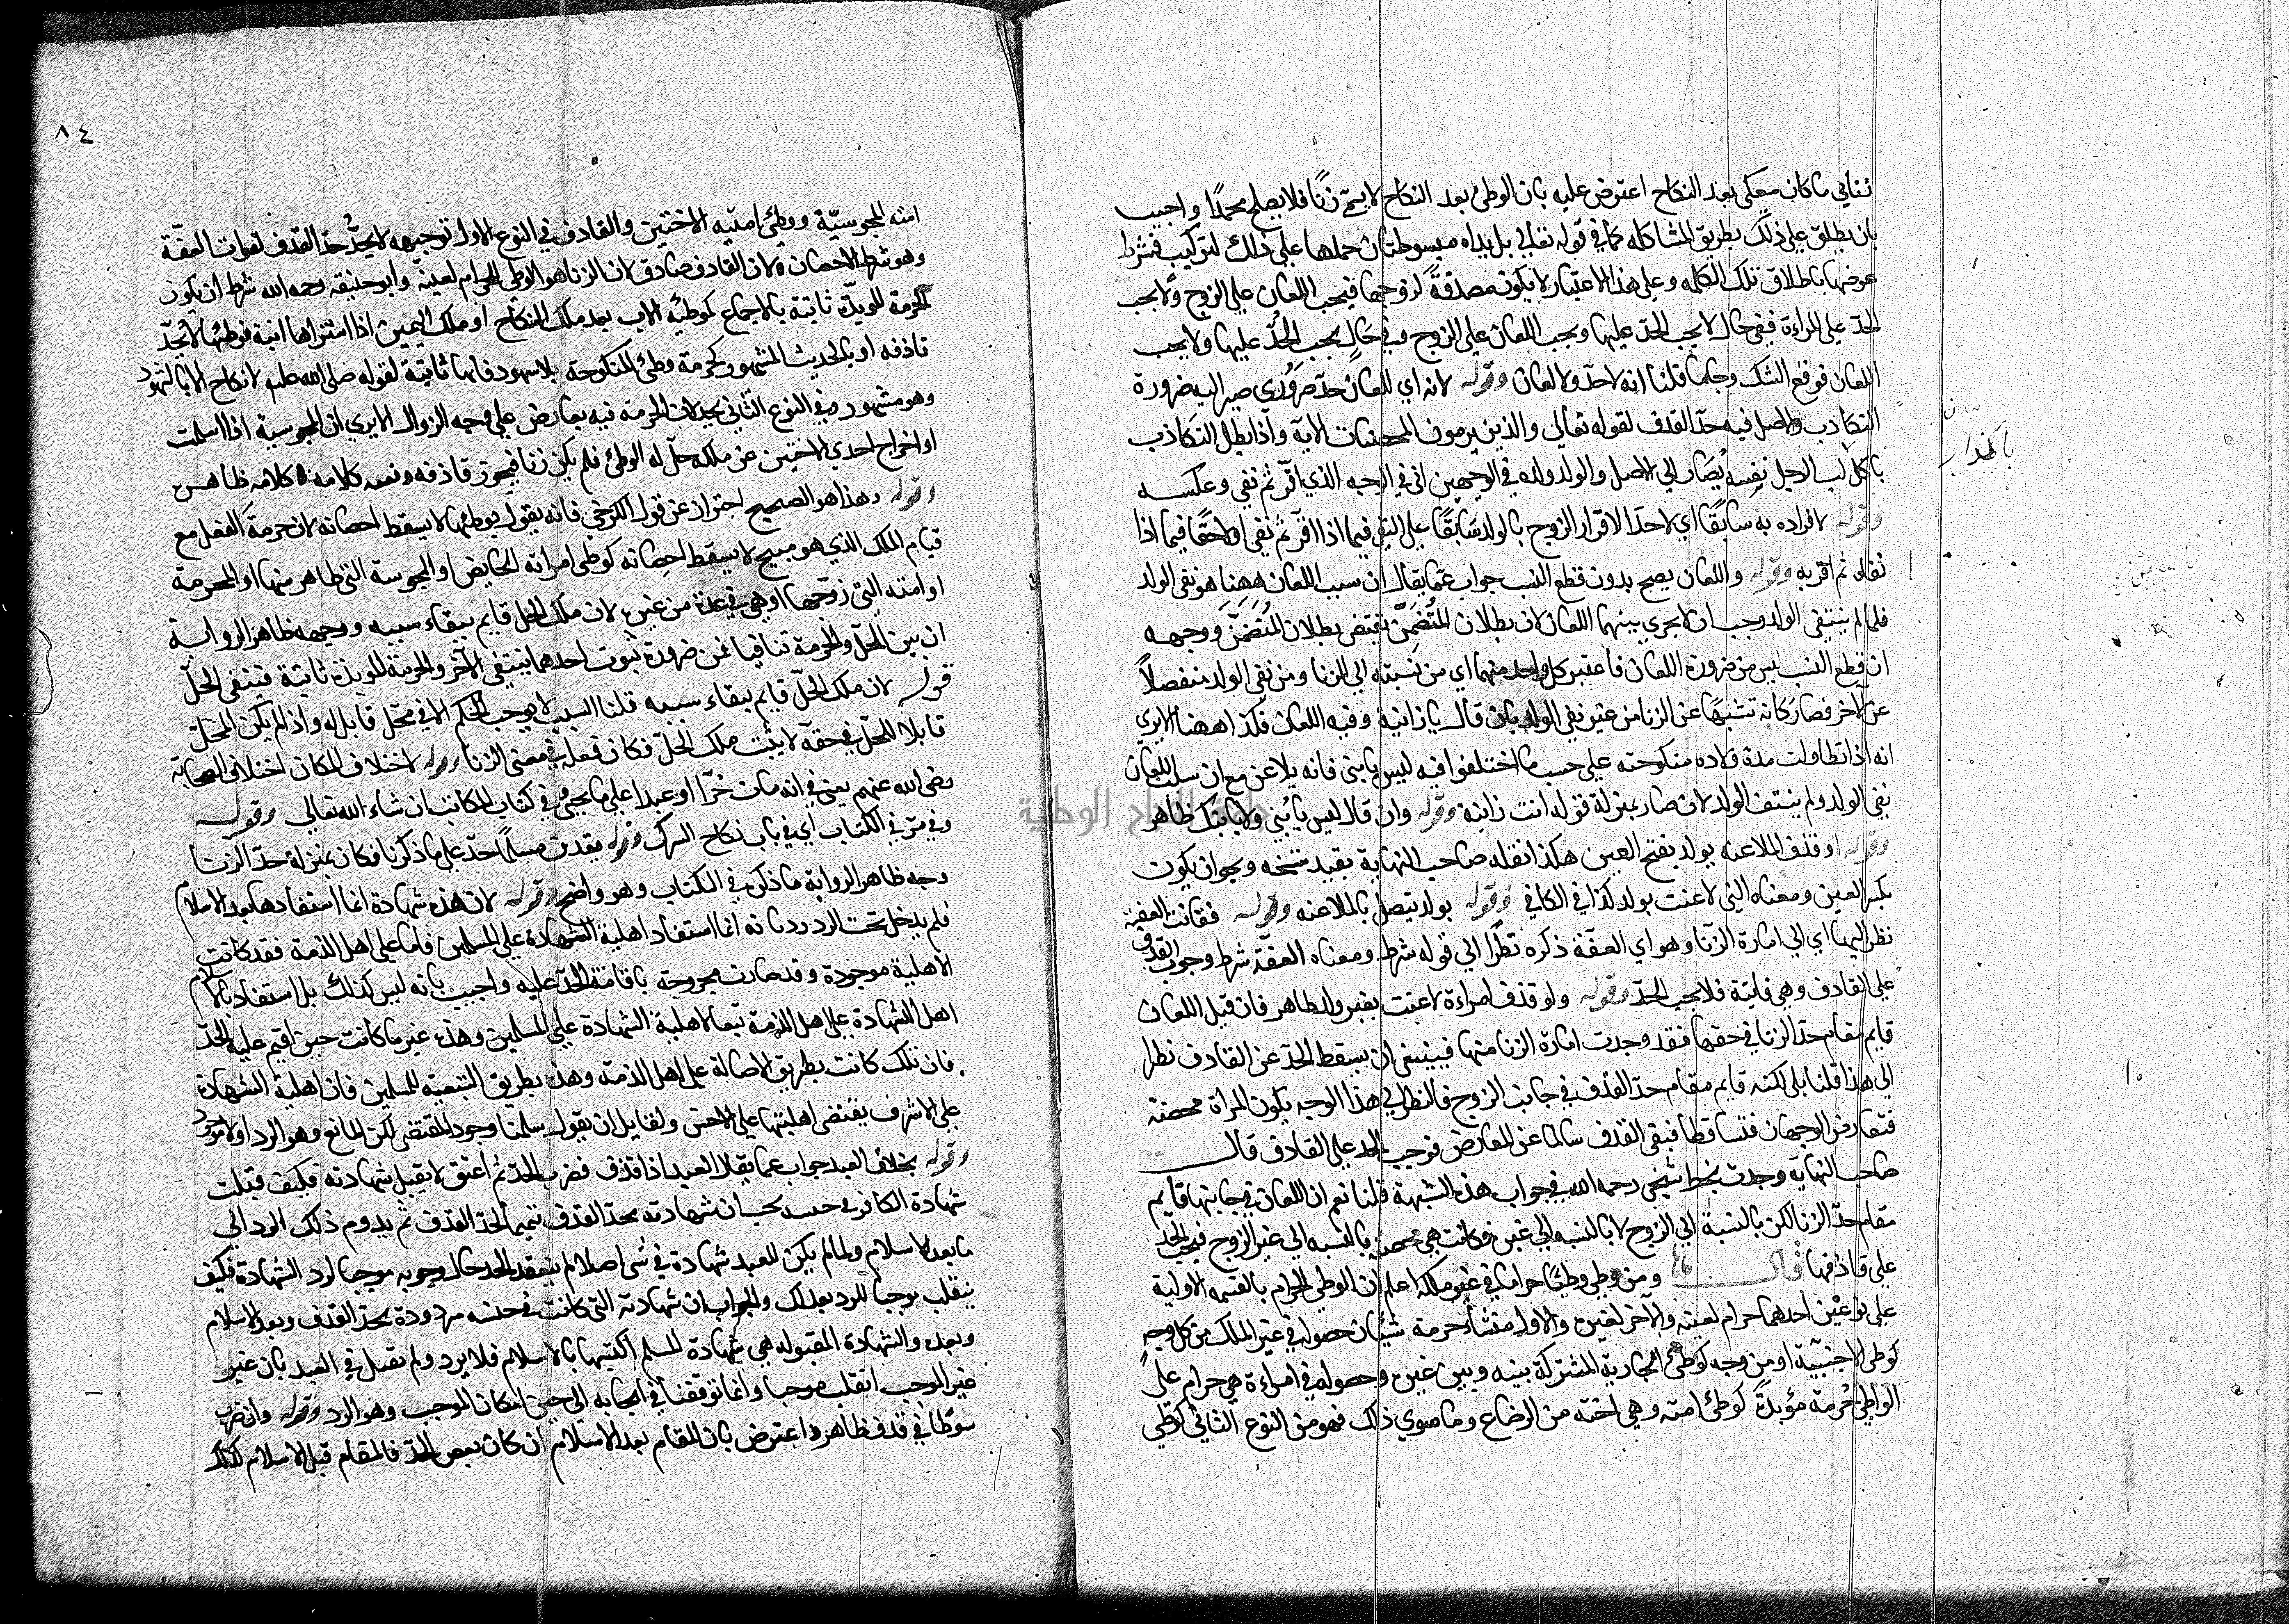 تنافي ما كان معكى بعد النكاح اعترض عليه بان الوطئ بعد النكاح لا يسمّى زنًا فلا يصلح محملًا واجيب
بان يطلق على ذلك بطريق المشاكله كما في قوله تعالى بل يداه مبسوطتان حملها على ذلك لتركيب فشرط
عوضها باطلاق تلك الكلمه وعلى هذا الاعتبار لا يكون مصدقةً لزوجها فيجب اللعان على الزوج ولا يجب
الحدّ على المراءة ففي حال لا يجب الحدّ عليها ويجب اللعان على الزوج وفي حالٍ يجب الحُدّ عليها ولا يجب
اللعان فوقع الشك وجلها قلنا انه لا حدّ ولا لعان وقوله لانه اي اللعان حدّ ضروري صير اليه ضرورة
التكاذب والاصل فيه حدّ القذف لقوله تعالى والذين يرمون المحصنات الاية واذا بطل التكاذب
باكذاب الرجل نفسه يُصار الى الاصل والولد ولده في الوجهين اى في الوجه الذي اقرّ ثم نفي وعكسه
وقوله لاقراره به سابقًا اي لاحدّ الاقرار الزوج بالولد سَابقًا على النفي فيما اذا اقرّ ثم نفي اولاحقًا فيما اذا
نفاه ثم اقر به وقوله واللعان يصح بدون قطع النسب جواب عمّا يقال ان سبب اللعان ههنا هو نفي الولد
فلما لم ينتفي الولد وجب ان لا يجري بينهما اللعان لان بطلان المُتضمِّن يقتضي بطلان المُتضمَّن ووجهه
ان قطع النسب ليس من ضرورة اللعان فاعتبر كل واحد منهما اي من نسبته الى الزنا ومن نفي الولد منفصلًا
عن الآخر فصار كانه تشبهًا عن الزنا من غير نفي الولد بان قال يا زانية وفيه اللعان فكذا ههنا الا يري
انه اذا تطاولت مدة ولاده منكوحته على حسب ما اختلفوا فيه ليس بابنى فانه يلاعن مع ان سبب اللعان
نفى الولد ولم ينتف الولد لانه صار بمنزلة قوله انت زانية وقوله وان قال ليس بابني ولا بابنك ظاهر
وقوله او قذف الملاعنه بولد بفتح العين هكذا نقله صاحب النهاية بقيد شيخه ويجوز ان يكون
بكسر العين ومعناه التي لاعنت بولد كذا في الكافي وقوله بولد يتصل بالملاعنه وقوله ففاتت العفة
نظرًا اليها اي الى امارة الزنا وهو اي العفّة ذكره نظرًا الى قوله شرط ومعناه العفّة شرط وجوب القذف
على القاذف وهي فايتة فلا يجب الحدّ وقوله ولو قذف امراءة لاعنت بغير ولد ظاهر فان قيل اللعان
قايم مقام حدّ الزنا في حقها فقد وجدت امارة الزنا منها فينبغى ان يسقط الحدّ عن القاذف نظرا
الى هذا قلنا بلى لكنه قايم مقام حدّ القذف في جانب الزوج فالنظر الى هذا الوجه يكون المراة محصنة
فتعارض الوجهان فتساقطا فبقى القذف سالما عن المعارض فوجب الحد على القاذف قال
صاحب النهاية وجدت بخط شيخى رحمه الله في جواب هذه الشبهة قلنا نعم ان اللعان في جانبها قايم
مقام حدّ الزنا لكن بالنسبة الى الزوج لا بالنسبه الى غيره فكانت هي محصنة بالنسبه الى غير الزوج فيجب الحد
على قاذفها قال ومن وطى وطئًا حرامًا في غير ملكه اعلم ان الوطي الحرام بالقسمه الاولية
على نوعين احدهما حرام لعينه والآخر لغيره والاول منشاء حرمة شيئان حصوله في غير الملك من كل وجهٍ
كوطى الاجنبيّة او من وجه كوطئ الجارية المشتركة بينه وبين غيره وحصوله في امراءة هي حرام على
الواطئ حُرمة مؤبدةً كوطئ امته وهي اخته من الرضاع وما سوي ذلك فهو من النوع الثاني كوطي
باكذاب
٨٤
امته المجوسيّة ووطئ امتيه الاختين والقاذف في النوع الاول توجيهه لا يُحدُّ حدّ القذف لفوات العفّة
وهو شرط الاحصان ولان القاذف صادق لان الزنا هو الوطى الحرام لعينه وابو حنيفه رحمه الله شرط ان يكون
الحرمة المويدّة ثابتة بالاجماع كموطئه الاب بعد ملك النكاح او ملك اليمين اذا اشتراها ابنه فوطئها لا يُحدّ
قاذفه او بالحديث المشهور كحرمة وطئ المنكوحة بلا شهود فانها ثابتة لقوله صلى الله عليه لا نكاح الا بالشهود
وهو مشهور وفي النوع الثاني يحد لان الحرمة فيه بعارض على وجه الزوال الا يري ان المجوسية اذا اسلمت
او اخرج احدي الاختين عن ملكه حلّ له الوطئ فلم يكن زنا فيحد قاذفه ونص كلامه كلامه ظاهر
وقوله وهذا هو الصحيح احتراز عن قول الكرخي فانه يقول بوطئها لا يسقط احصانه لان حرمة الفعل مع
قيام الملك الذي هو مبيح لا يسقط احصانه كوطى امراته الحايض او المجوسية التي ظاهر منها او المحرمة
او امته التي زوّجها او هي في عدة من غيره لان ملك الحل قايم ببقاء سببه ووجهه ظاهر الرواية
ان بين الحلّ والحرمة تنافيا فمن ضرورة ثبوت احدهما ينتفى الآخر والحرمة المويدة ثابتة فينتفى الحلّ
قوله لان ملك الحلّ قايم ببقاء سببه قلنا السبب لا يوجب الحكم الا في محّل قابل له واذا لم يكن المحلّ
قابلا للحلّ في حقه لا يثبت ملك الحلّ فكان فعله في معنى الزنا وقوله لاختلاف المكان اختلاف الصحابة
رضى الله عنهم يعنى في انه مات حُرّا او عبدا على ما يجئ في كتاب المكاتب ان شاء الله تعالى وقوله
وفي مرّ في الكتاب اي في باب نكاح الشرك وقوله بقذف مسلمًا حدّ على ما ذكرنا فكان بمنزلة حدّ الزنا
وجه ظاهر الرواية ما ذكر في الكتاب وهو واضح وقوله لان هذه شهادة انما استفادها بعد الاسلام
فلم يدخل تحت الرد ردّ بانه انما استفاد اهلية الشهادة على المسلمين فاما على اهل الذمة فقد كانت
الاهلية موجودة وقد صارت مجروحة باقامة الحدّ عليه واجيب بانه ليس كذلك بل استفاد بالاسلام
اهل الشهادة على اهل الذمة تبعا لاهلية الشهادة على المسلمين وهذه غير ما كانت حين اقيم عليه الحدّ
فان تلك كانت بطريق الاصالة على اهل الذمة وهذه بطريق التبعية للمسلمين فان اهلية الشهادة
على الاشرف يقتضى اهليتها على الاخس ولقايل ان يقول سلمنا وجود المقتضى لكن المانع وهو الرد اولا موجود
وقوله بخلاف العبد جواب عما يقال العبد اذا قذف فضرب الحدّ ثم اعتق لا يقبل شهادته فكيف قبلت
شهادة الكافر في حسبه يجب ان شهادته بحدّ القذف تتميم الحدّ القذف ثم يدوم ذلك الرد الى
ما بعد الاسلام ولما لم يكن للعبد شهادة في شى اصلا لم ينعقد الحد حال وجوبه موجبا لرد الشهادة فكيف
ينقلب موجبا للرد بعد ذلك والجواب ان شهادته التى كانت في حسه مردودة بحدّ القذف وبعد الاسلام
وبعده والشهادة المقبوله هي شهادة المسلم اكتسبها بالاسلام فلا يرد ولم تقبل في العبد بان غير
غير الموجب انقلب موجبا وانما توقفنا في ايجابه الى حين امكان الموجب وهو الرد وقوله وان ضرب
سوطًا في قذف ظاهره اعترض بان المقام بعد الاسلام ان كان بعض الحدّ فالمقام قبل الاسلام كذلك